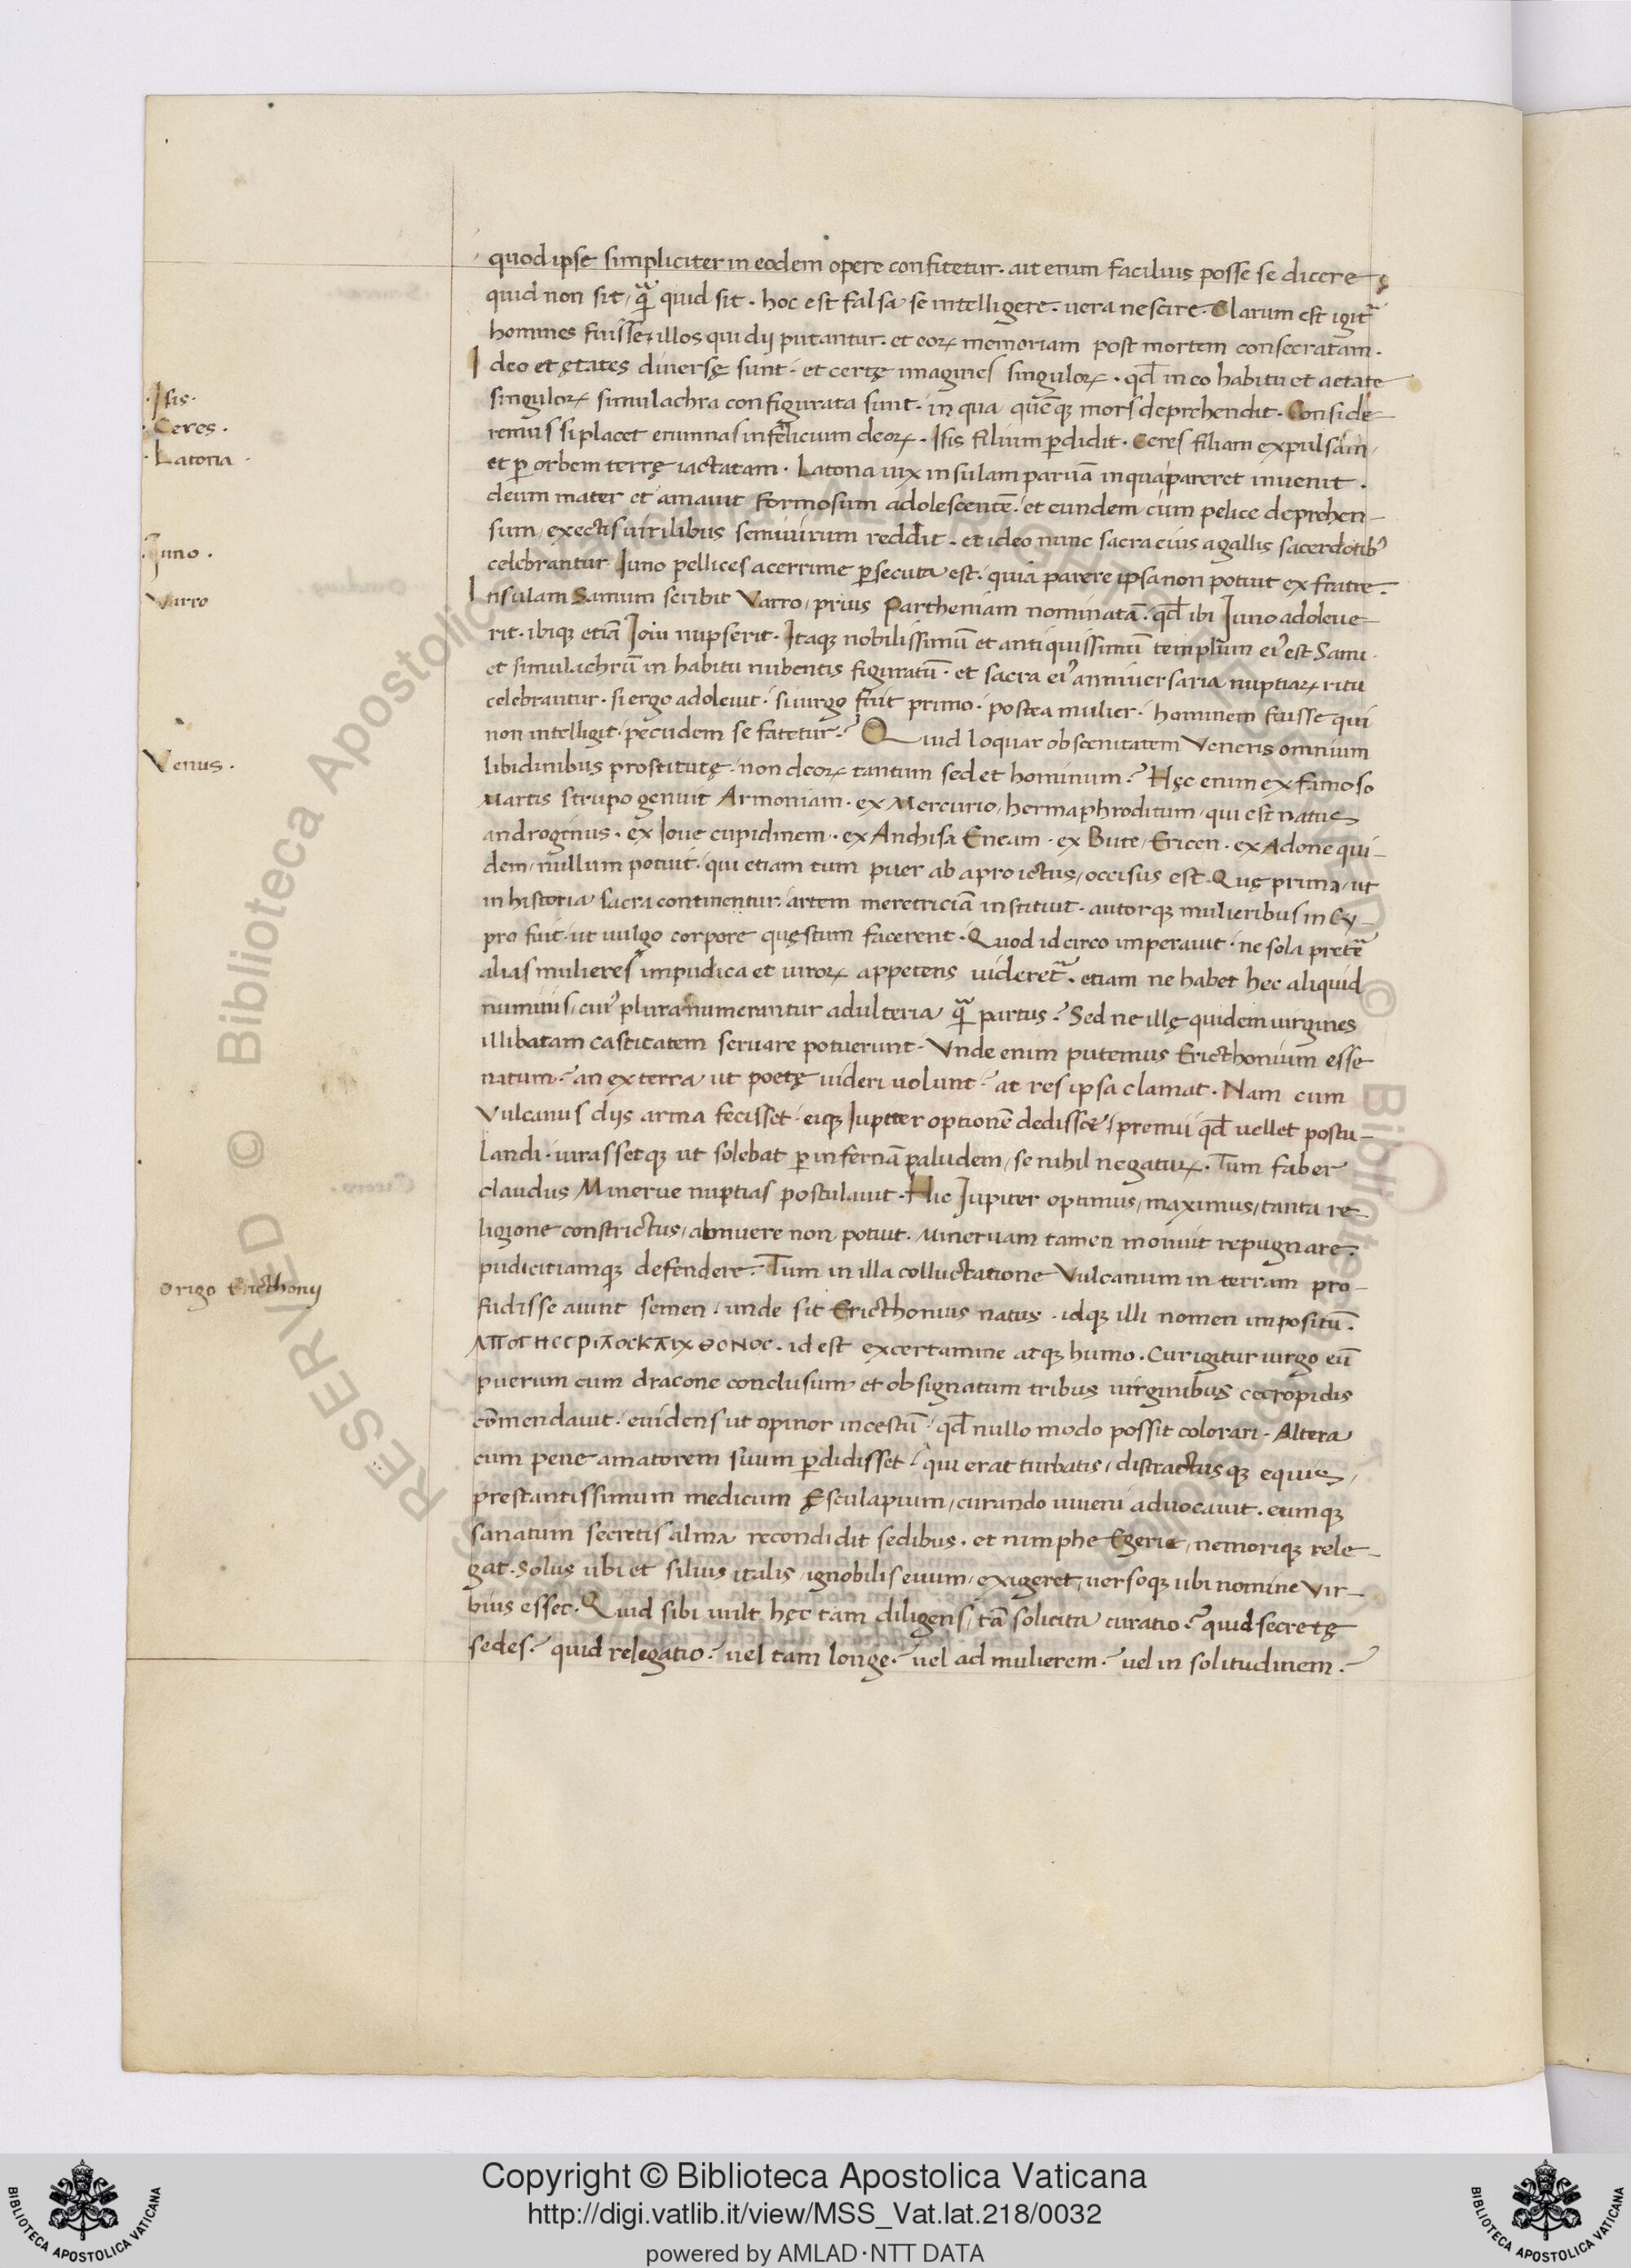 quod ipse simpliciter in eodem opere confitetur. ait enim facilius posse se dicere
quid non sit, qͣ̄ quid sit. hoc est falsa se intelligere. uera nescire. Clarum est igit᷑
homines fuisse illos qui dij putantur. et eoꝝ memoriam post mortem consecratam.
Ideo et ętates diuersę sunt. et certę imagines singuloꝝ. qd̄ in eo habitu et aetate
singuloꝝ simulachra configurata sunt. in qua quēqꝫ mors deprehendit. Conside
remus si placet erumnas infelicium deoꝝ. Isis filium ꝑdidit. Ceres filiam expulsam,
et ꝑ orbem terrę iactatam. Latona uix insulam paruā in qua pareret inuenit.
deum mater et amauit formosum adolescentē. et eundem cum pelice deprehen-
sum, exectis uirilibus semiuirum reddit. et ideo nunc sacra eius a gallis sacerdotib᾽
celebrantur. Iuno pellices acerrime ꝑsecuta est. quia parere ipsa non potuit ex fratre.
Insulam Samum scribit Varro, prius Partheniam nominatā. qd̄ ibi Iuno adoleue
rit. ibiqꝫ etiā Ioui nupserit. Itaqꝫ nobilissimū et antiquissimū templum ei᾽ est Sami.
et simulachrū in habitu nubentis figuratū. et sacra ei᾽ anniuersaria nuptiaꝝ ritu
celebrantur. si ergo adoleuit. si uirgo fuit primo. postea mulier. hominem fuisse qui
non intelligit. pecudem se fatetur. Quid loquar obscenitatem Veneris omnium
libidinibus prostitutę. non deoꝝ tantum sed et hominum? Hęc enim ex famoso
Martis strupo genuit Armoniam. ex Mercurio, hermaphroditum, qui est natus
androginus. ex Ioue cupidinem. ex Anchisa Eneam. ex Bute, Ericen. ex Adone qui-
dem, nullum potuit. qui etiam tum puer ab apro ictus, occisus est. Quę prima, ut
in historia sacra continentur. artem meretriciā instituit. autorqꝫ mulieribus in Cy-
pro fuit. ut uulgo corpore quęstum facerent. Quod idcirco imperauit. ne sola pret᷑
alias mulieres impudica et uiroꝝ appetens uideret᷑. etiam ne habet hec aliquid
numinis, cui᾽ plura numerantur adulteria qͣ̄ partus? Sed ne illę quidem uirgines
illibatam castitatem seruare potuerunt. Vnde enim putemus Ericthonium esse
natum? an ex terra ut poetę uideri uolunt? at res ipsa clamat. Nam cum
Vulcanus dijs arma fecisset. eiqꝫ Iupiter optionē dedisset, premii qd̄ uellet postu-
landi. iurassetqꝫ ut solebat ꝑ infernā paludem, se nihil negatuꝝ. Tum faber
claudus Minerue nuptias postulauit. Hic Iupiter optimus, maximus, tanta re
ligione constrictus, abnuere non potuit. Mineruam tamen monuit repugnare.
pudicitiamqꝫ defendere. Tum in illa colluctatione Vulcanum in terram pro-
fudisse aiunt semen. unde sit Ericthonius natus. idqꝫ illi nomen impositū.
id est excertamine atqꝫ humo. Cur igitur uirgo eū
puerum cum dracone conclusum et obsignatum tribus uirginibus cecropidis
cōmendauit. euidens ut opinor incestū. qd̄ nullo modo possit colorari. Altera
cum pene amatorem suum ꝑdidisset. qui erat turbatis, distractusqꝫ equis,
prestantissimum medicum Ęsculapium, curando iuueni aduocauit. eumqꝫ
sanatum secretis alma recondidit sedibus. et nimphe Egerie, nemoriqꝫ rele-
gat. Solus ubi et siluis italis, ignobilis euum, exigeret, uersoqꝫ ubi nomine Vir-
bius esset. Quid sibi uult hęc tam diligens, tā solicita curatio? quid secretę
sedes? quid relegatio? uel tam longe? uel ad mulierem? uel in solitudinem?
.Isis.
.Ceres.
.Latona.
.Iuno.
Varro
Venus.
Origo Ericthonij
RESERVED © Biblioteca Apostolica Vaticana
Copyright © Biblioteca Apostolica Vaticana
http://digi.vatlib.it/view/MSS_Vat.lat.218/0032
powered by AMLAD·NTT DATA
BIBLIOTECA APOSTOLICA VATICANA
BIBLIOTECA APOSTOLICA VATICANA